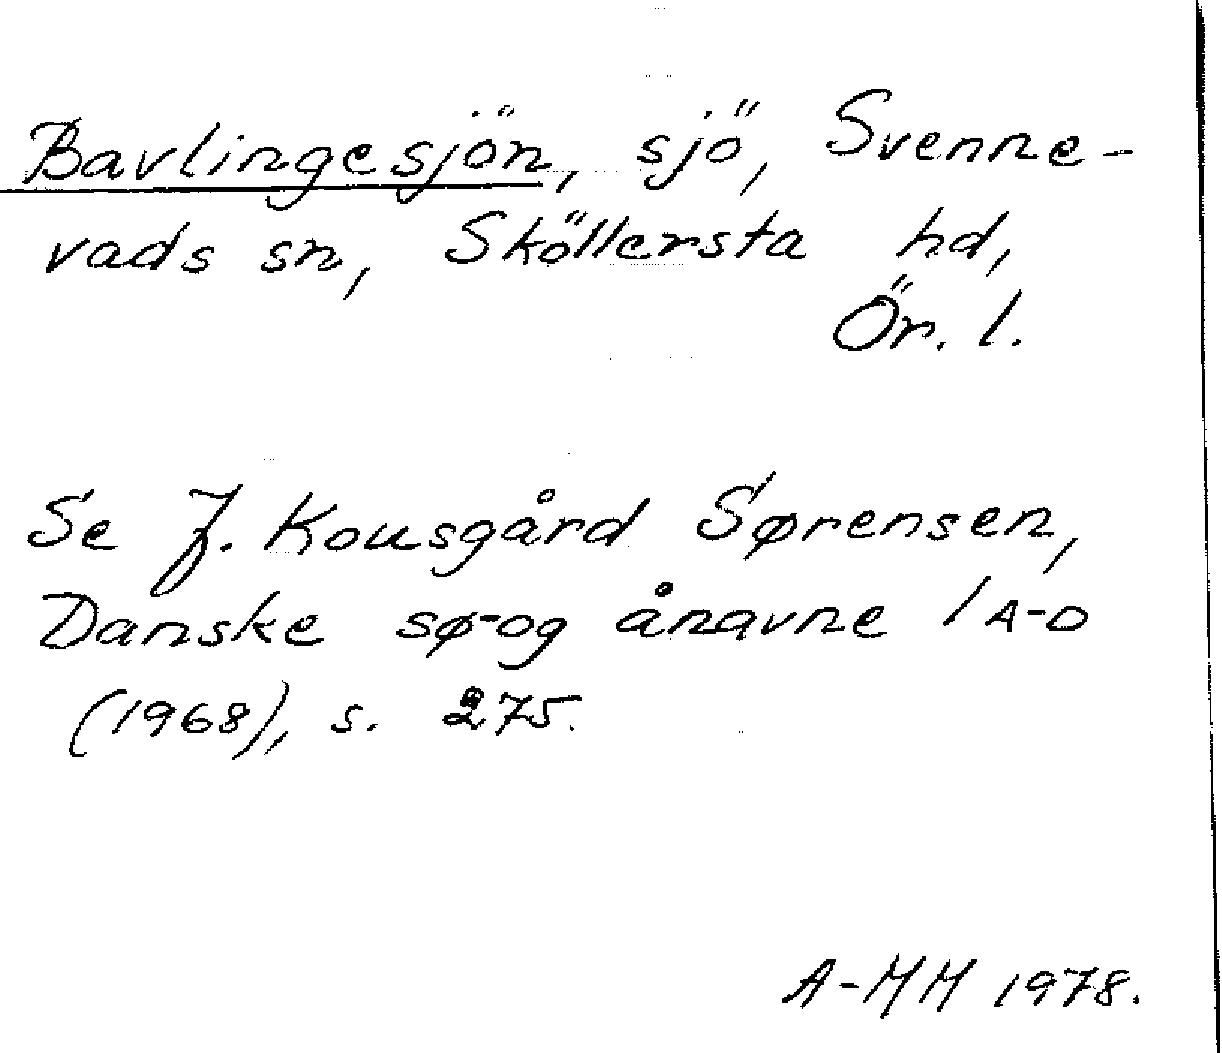 Bavlingesjön, sjö, Svenne-
vads sn, Sköllersta hd,
Ör. l.
Se J. Kousgård Sørensen,
Danske sø- og ånavne 1 A-D
(1968), s. 275.
A-MM 1978.